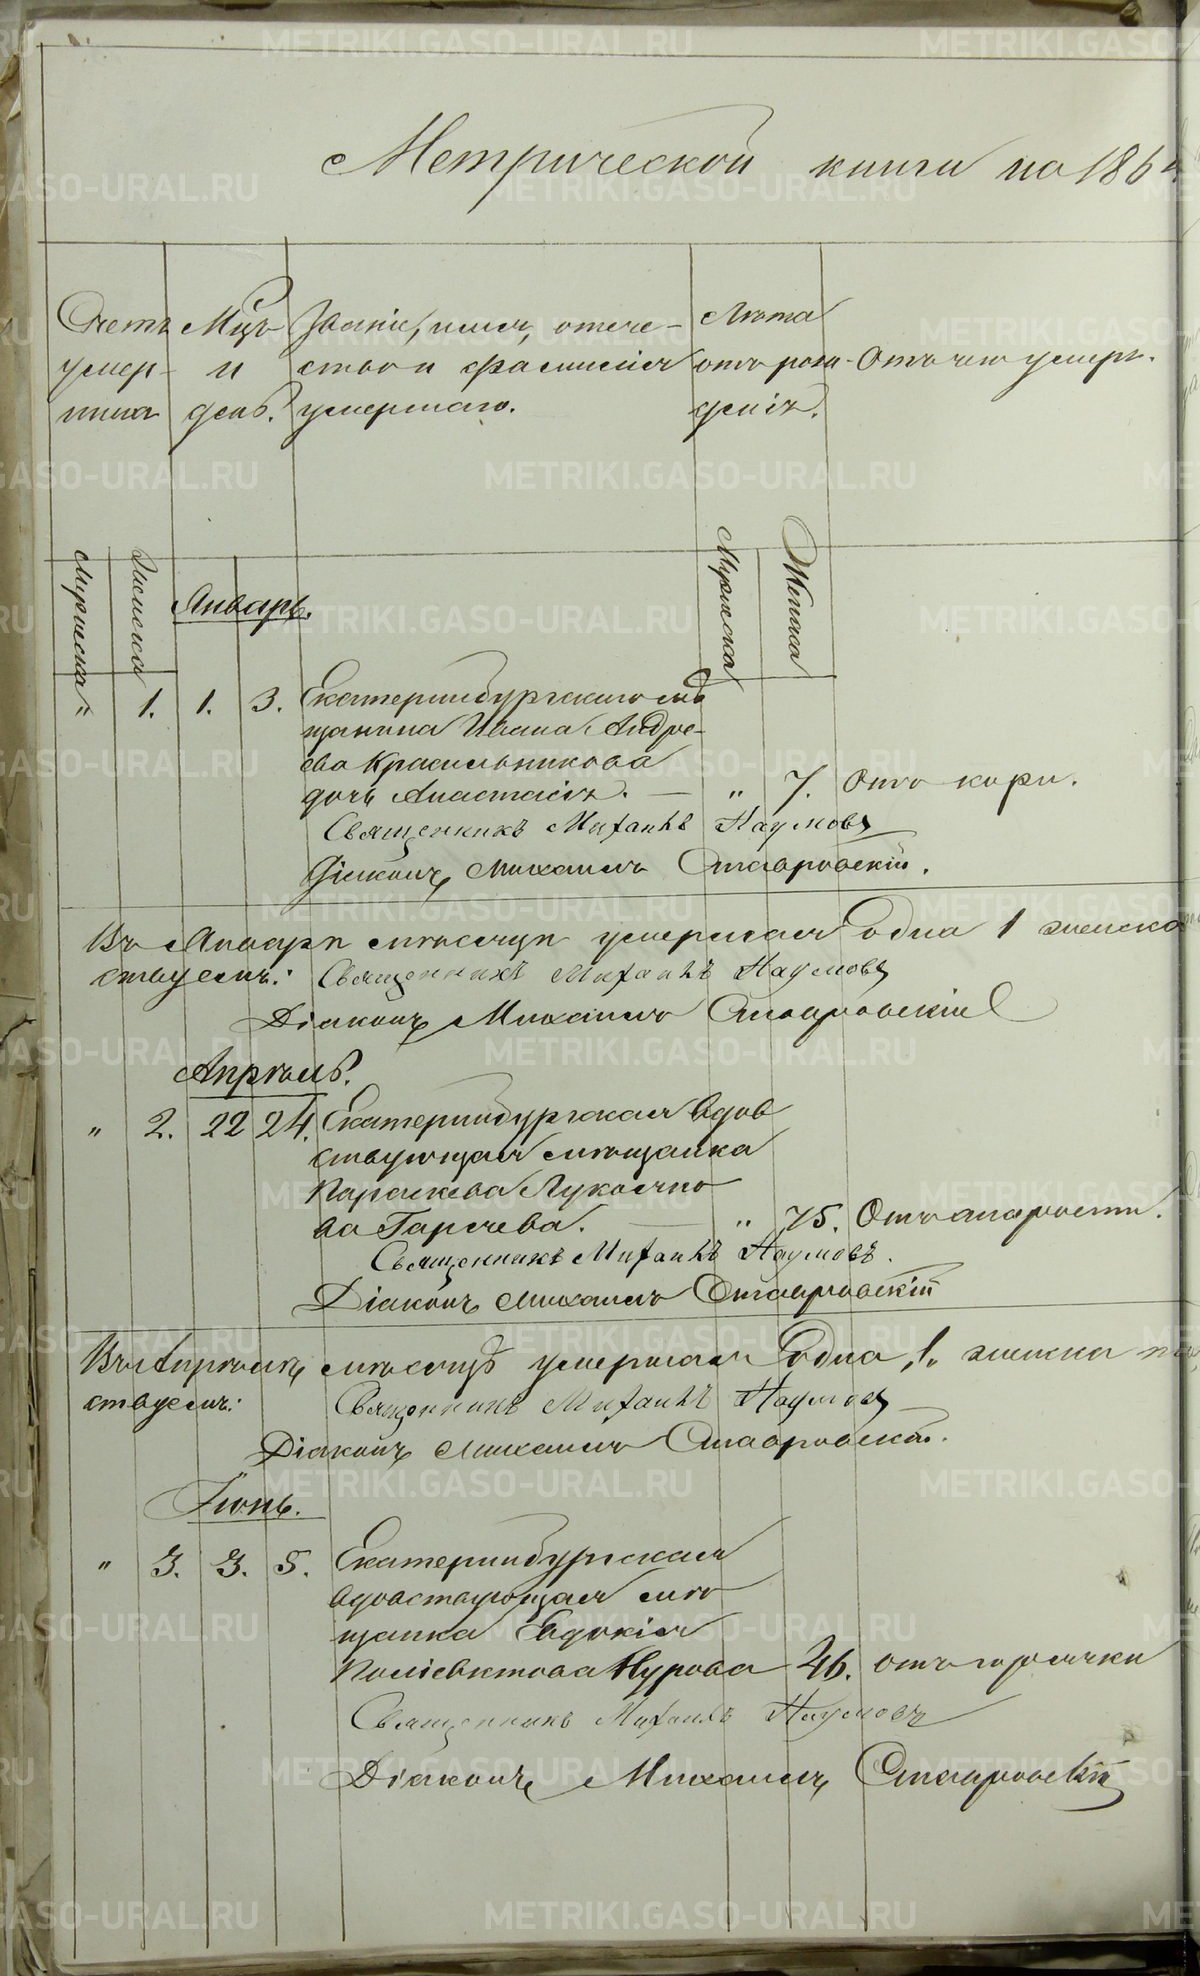 Метрической книги на 186
Счетъ
умер-
шихъ
Мцъ
и
день.
Званіе, имя, отече-
ство и фамилія
умершаго.
Лѣта
отъ рож-
денія.
Отъ чего умеръ.
Мужеска
Женска
Мужеска
Женска
Январь.
" 1. 1. 3. Екатеринбургскаго мѣ
щанина Ивана Андре-
ева Красильникова
дочь Анастасія. — " 7. Отъ кори.
Священникъ Михаилъ Наумовъ
Діаконъ Михаилъ Ставровскій.
Въ Январѣ мѣсяцѣ умершая одна 1 женска
ствуемъ: Священникъ Михаилъ Наумовъ
Діаконъ Михаилъ Ставровскій
Апрѣль.
" 2. 22 24. Екатеринбургская вдов
ствующая мѣщанка
Параскева Лукоянно
ва Гарчева. — " 75. Отъ старости.
Священникъ Михаилъ Наумовъ.
Діаконъ Михаилъ Ставровскій
Въ Апрѣлѣ мѣсяцѣ умершая одна, 1. женска
ствуемъ: Священникъ Михаилъ Наумовъ
Діаконъ Михаилъ Ставровскій.
Іюнь.
" 3. 3. 5. Екатеринбургская
вдовствующая мѣ
щанка Евдокія
Поліевктова 46. отъ горячки
Священникъ Михаилъ Наумовъ
Діаконъ Михаилъ Ставровскій
METRIKI.GASO-URAL.RU